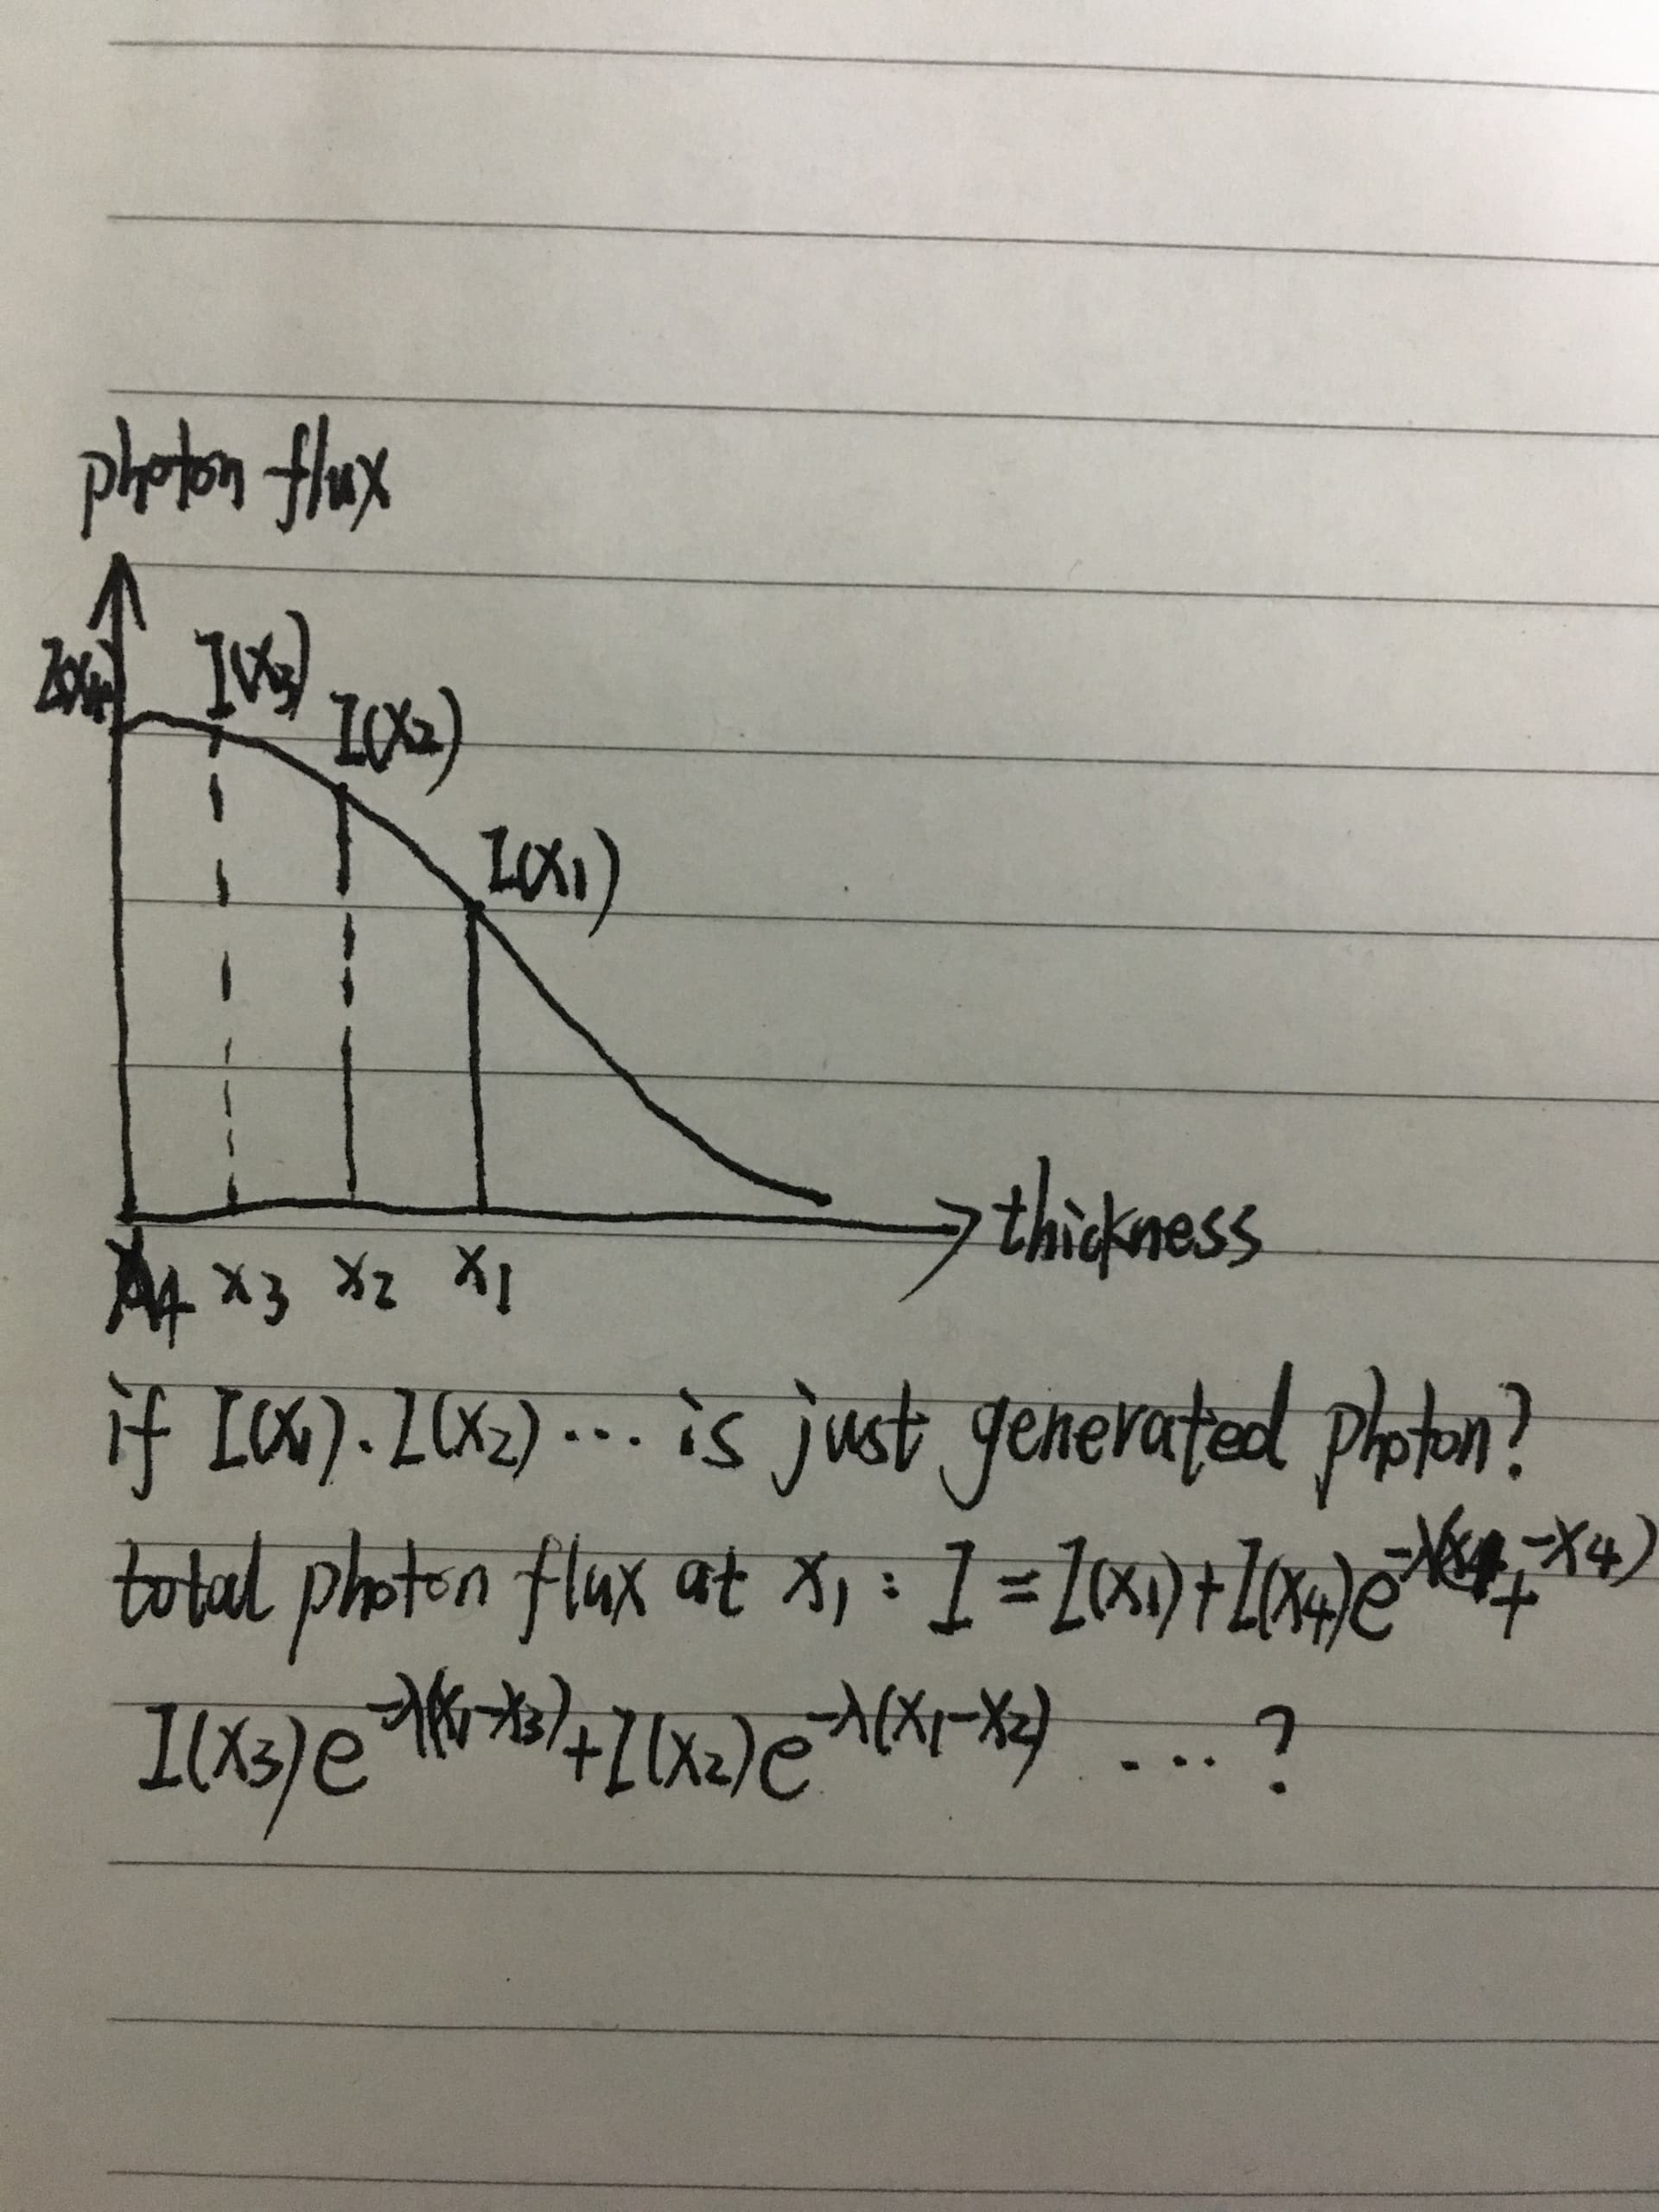 photon flux
I(x4)
I(x3)
I(x2)
I(x1)
thickness
x4 x3 x2 x1
if I(x1). I(x2) ... is just generated photon?
total photon flux at x1 : I = I(x1) + I(x4)e^-λ(x1-x4) +
I(x3)e^-λ(x1-x3) + I(x2)e^-λ(x1-x2) ... ?